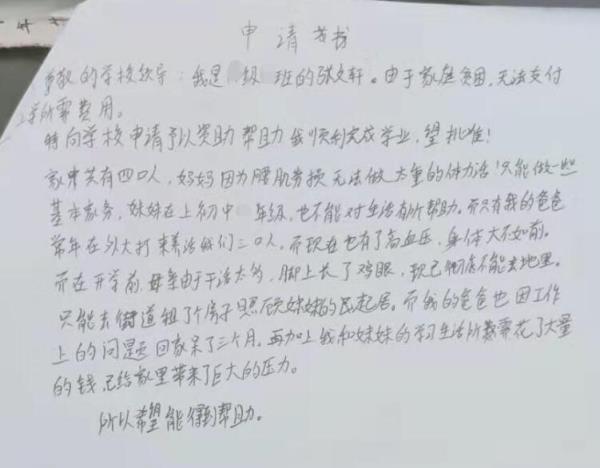 申请书
尊敬的学校领导：我是 级 班的张文轩。由于家庭贫困，无法支付
上学所需费用。
特向学校申请予以资助帮助我顺利完成学业，望批准！
家中共有四口人，妈妈因为腰肌劳损无法做太重的体力活，只能做一些
基本家务，妹妹在上初中 年级，也不能对生活有所帮助。而只有我的爸爸
常年在外打 来养活我们三口人。而现在也有了高血压，身体大不如前。
而在开学前，母亲由于干活太多，脚上长了鸡眼，现已彻底不能去地里。
只能去街道租了个房子照 妹妹的 起居。而我的爸爸也因工作
上的问题回家呆了三个月，再加上我和妹妹的学习生活所需花了大量
的钱，已给家里带来了巨大的压力。
所以希望能得到帮助。